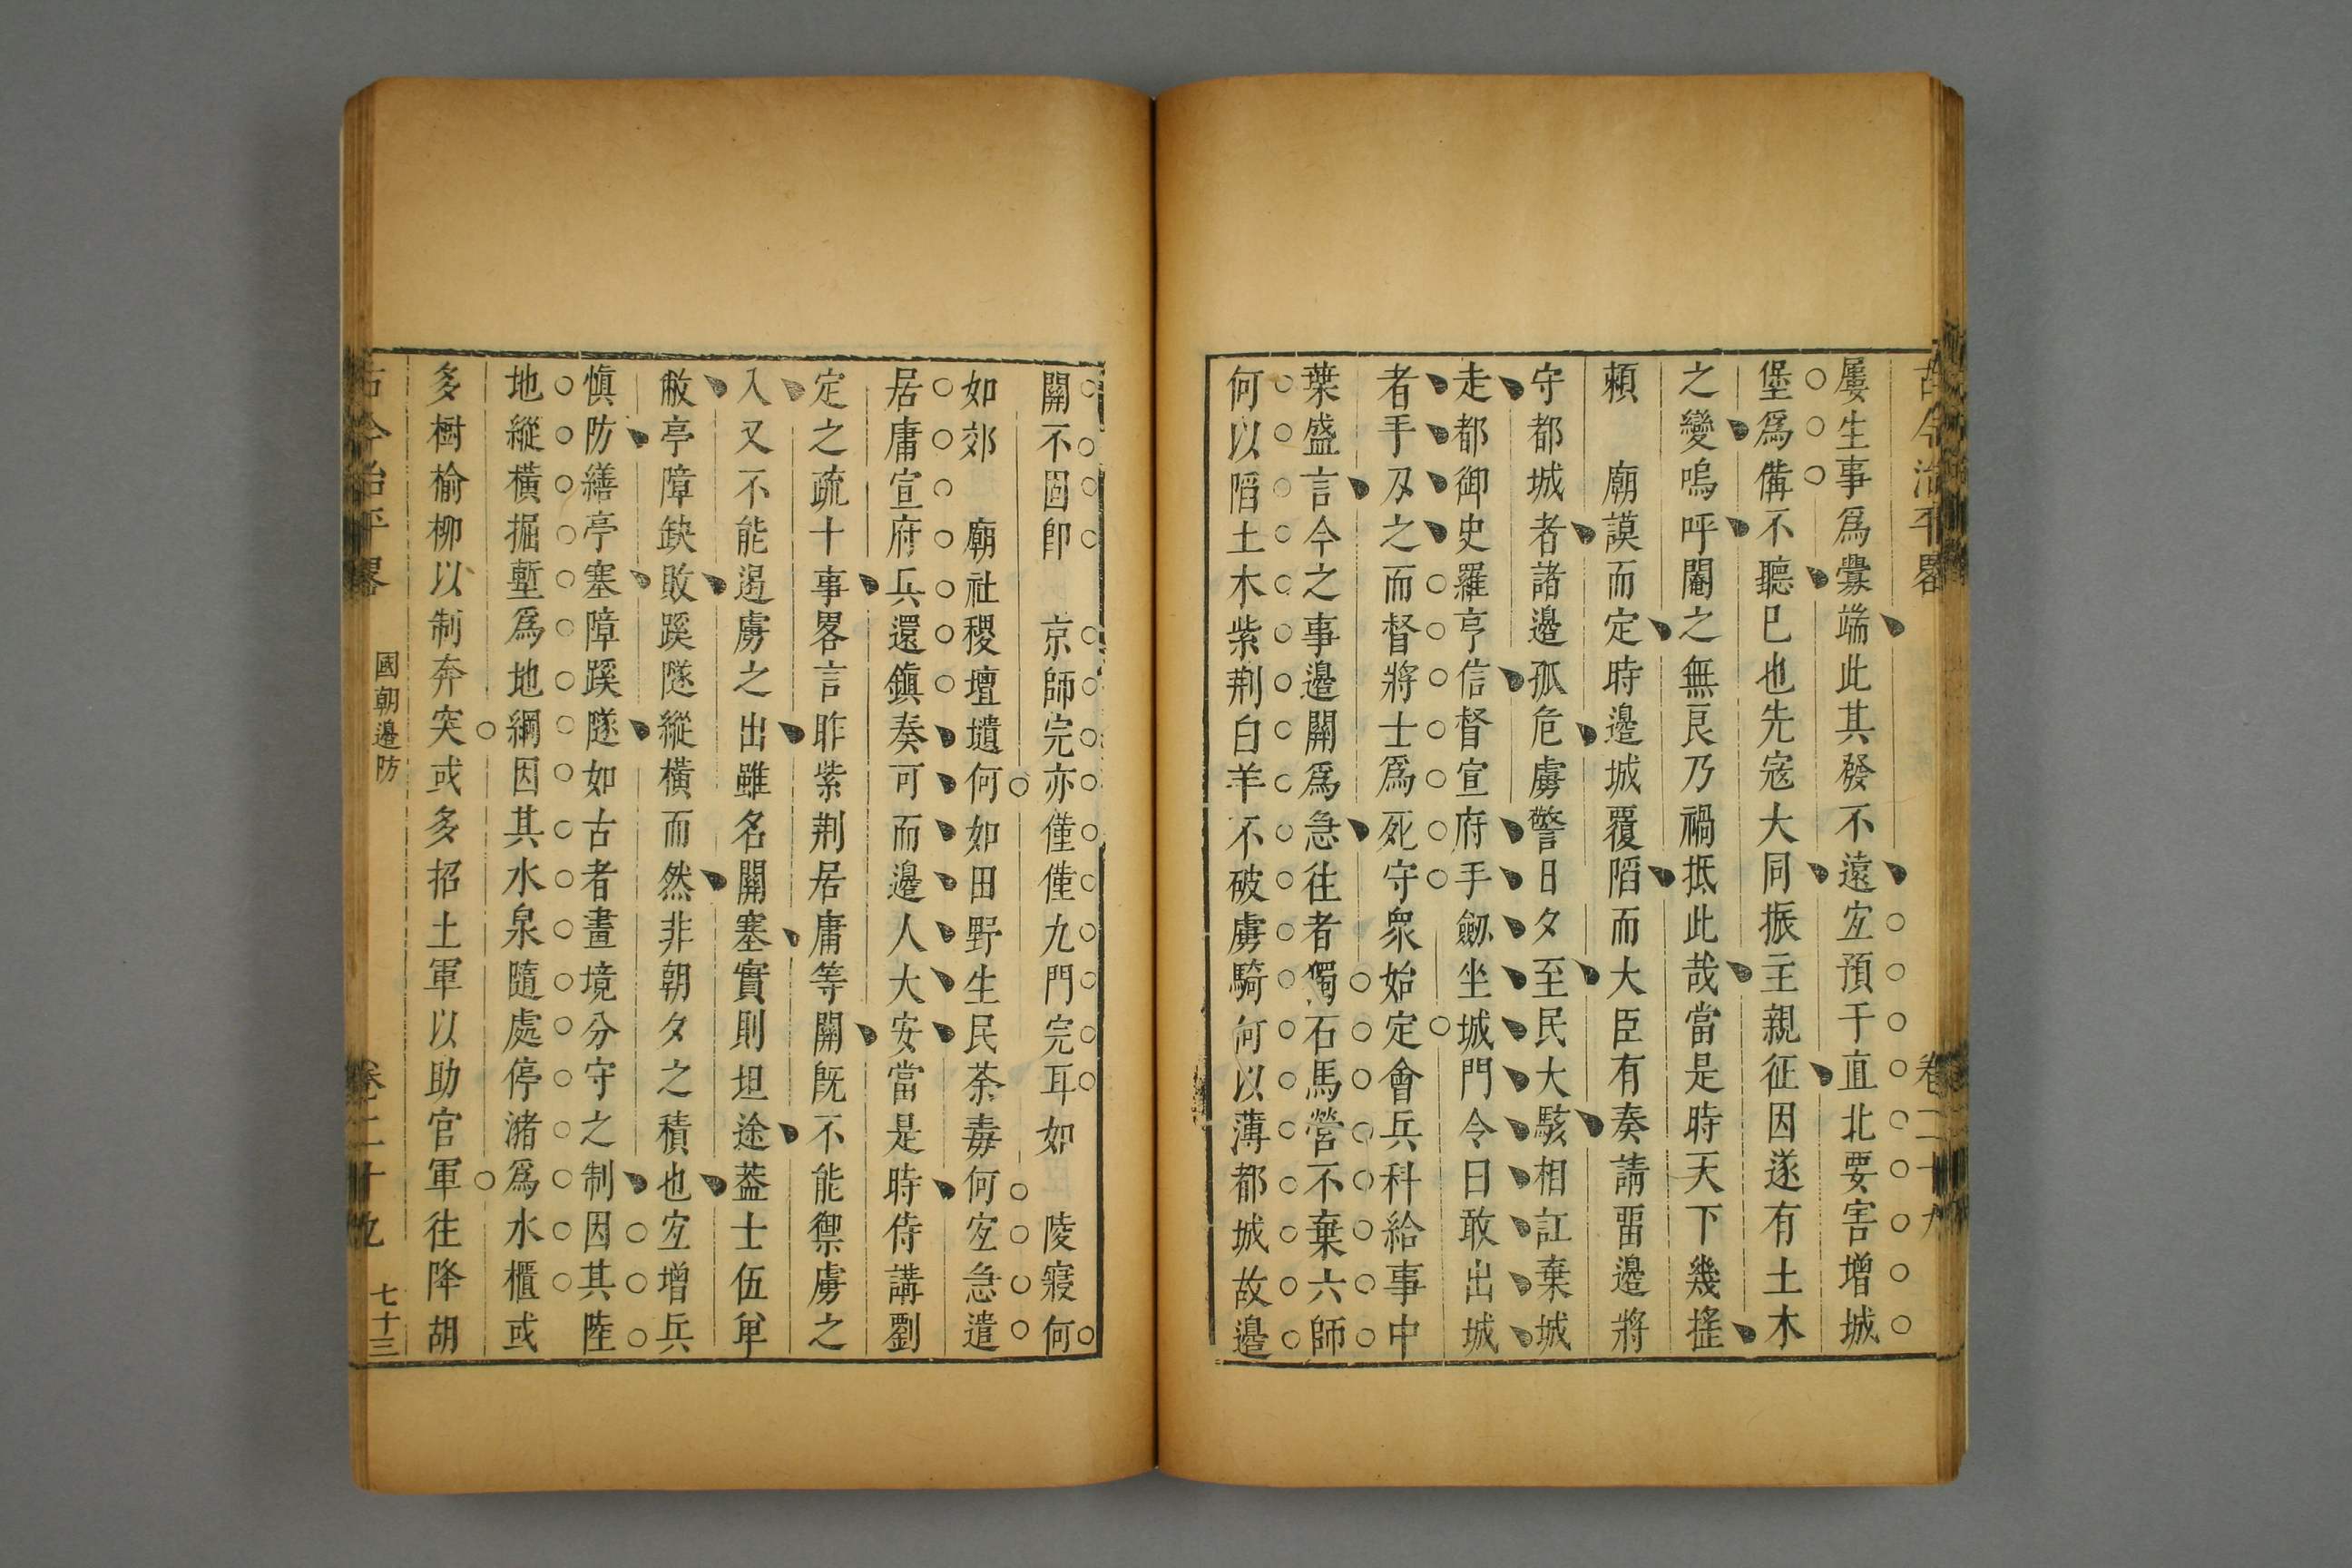 古今治平畧 卷二十九
屢生事爲釁端此其發不遠宐預于直北要害增城
堡爲備不聽已也先寇大同振主親征因遂有土木
之變嗚呼閹之無良乃禍抵此哉當是時天下幾揺
頼 廟謨而定時邉城覆䧟而大臣有奏請畱邉將
守都城者諸邉孤危虜警日夕至民大駭相訌棄城
走都御史羅亨信督宣府手劒坐城門令曰敢出城
者手刄之而督將士爲死守衆始定會兵科給事中
葉盛言今之事邉關爲急往者獨石馬營不棄六師
何以䧟土木紫荆白羊不破虜騎何以薄都城故邉
關不固卽 京師完亦僅僅九門完耳如 陵寢何
如郊 廟社稷壇壝何如田野生民荼毒何宐急遣
居庸宣府兵還鎭奏可而邉人大安當是時侍講劉
定之疏十事畧言昨紫荆居庸等關旣不能禦虜之
入又不能遏虜之出雖名關塞實則坦途葢士伍單
敝亭障缺敗蹊隧縱橫而然非朝夕之積也宐增兵
愼防繕亭塞障蹊隧如古者畫境分守之制因其陸
地縱橫掘塹爲地網因其水泉隨處停瀦爲水櫃或
多樹榆柳以制奔突或多招土軍以助官軍往降胡
古今治平畧 國朝邉防 卷二十九 七十三